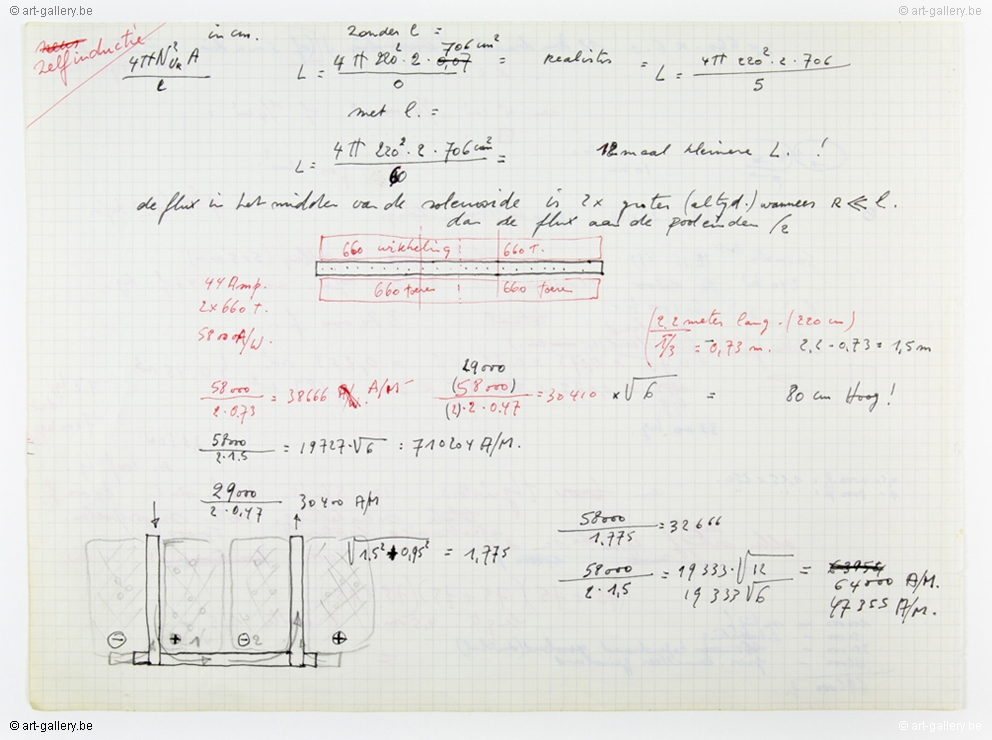 © art-gallery.be © art-gallery.be
zelfinductie
in cm.
4πN² A / l
zonder l =
L = 4π 220² · 2 · 706 cm² / 0 = realistis = L = 4π 220² · 2 · 706 / 5
met l. =
L = 4π 220² · 2 · 706 cm² / 60 = 12 maal kleinere L. !
de flux in het midden van de solenoïde is 2x groter (altyd.) wanneer R ≪ l.
dan de flux aan de pooleinden /2
660 wikkeling 660 t.
660 toeren 660 toeren
44 Amp.
2 x 660 t.
58000 A/W.
(2,2 meter lang. (220 cm)
π/3 = 0,73 m. 2,2 - 0,73 = 1,5 m
58000 / 2 · 0.73 = 38666 A/M
29000
(58000) / (2) · 2 · 0.47 = 30410 × √6 = 80 cm Hoog!
58000 / 2 · 1.5 = 19727 · √6 : 710204 A/M.
29000 / 2 · 0,47 = 30400 A/M
√1,5² + 0,95² = 1,775
58000 / 1,775 = 32666
58000 / 2 · 1,5 = 19333 · √12 = 64000 A/M.
19333 √6 47355 A/M.
⊖ + 1 ⊖ 2 ⊕
© art-gallery.be © art-gallery.be